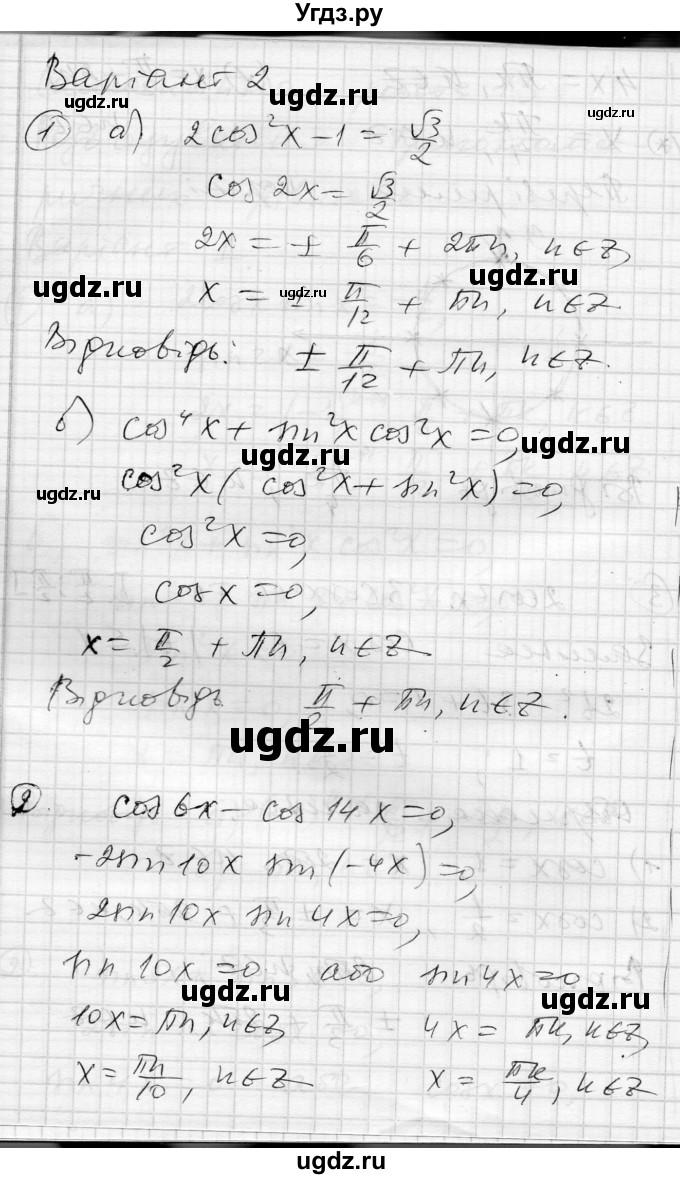 Угдз.ру
Варіант 2
ugdz.ru ugdz.ru ugdz.ru
① а) 2cos²x − 1 = √3/2
cos 2x = √3/2
2x = ± π/6 + 2πn, n ∈ Z,
ugdz.ru ugdz.ru ugdz.ru
x = ± π/12 + πn, n ∈ Z
Відповідь: ± π/12 + πn, n ∈ Z.
б) cos⁴x + sin²x cos²x = 0,
ugdz.ru ugdz.ru
cos²x (cos²x + sin²x) = 0,
ugdz.ru
cos²x = 0,
cos x = 0,
x = π/2 + πn, n ∈ Z
Відповідь π/2 + πn, n ∈ Z.
ugdz.ru
② cos 6x − cos 14x = 0,
−2sin 10x sin (−4x) = 0,
2sin 10x sin 4x = 0,
sin 10x = 0 або sin 4x = 0
ugdz.ru ugdz.ru
10x = πn, n ∈ Z, 4x = πk, n ∈ Z,
x = πn/10, n ∈ Z x = πk/4, n ∈ Z
ugdz.ru